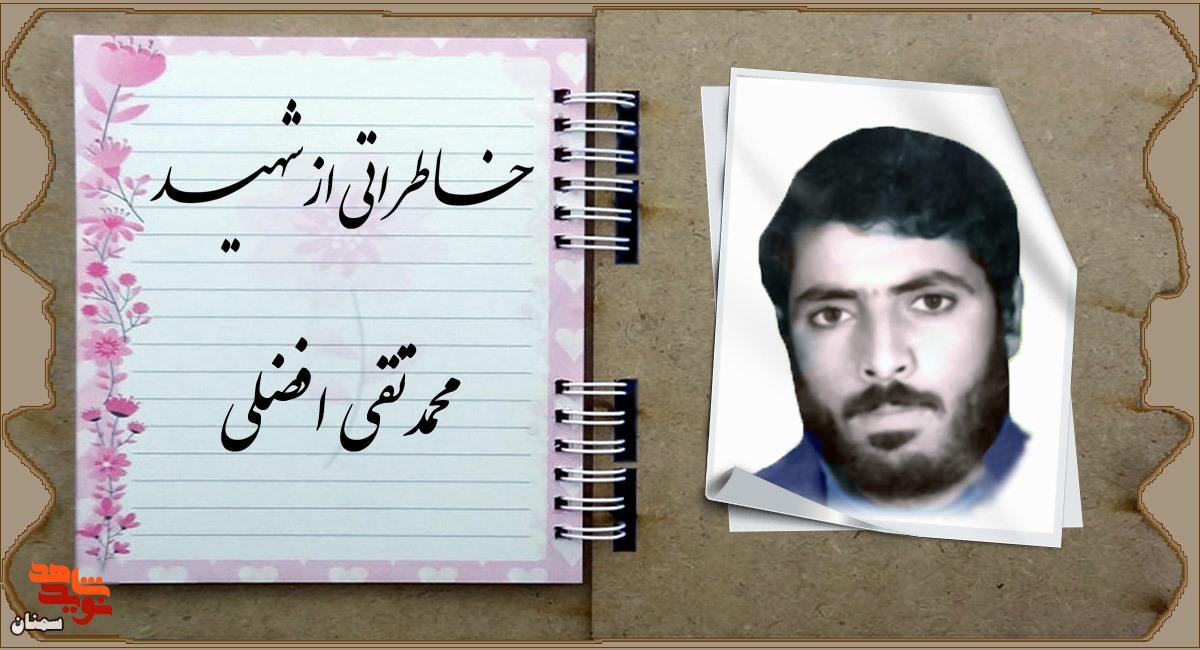 خاطراتی از شهید
محمدتقی افضلی
نوید شاهد
سمنان